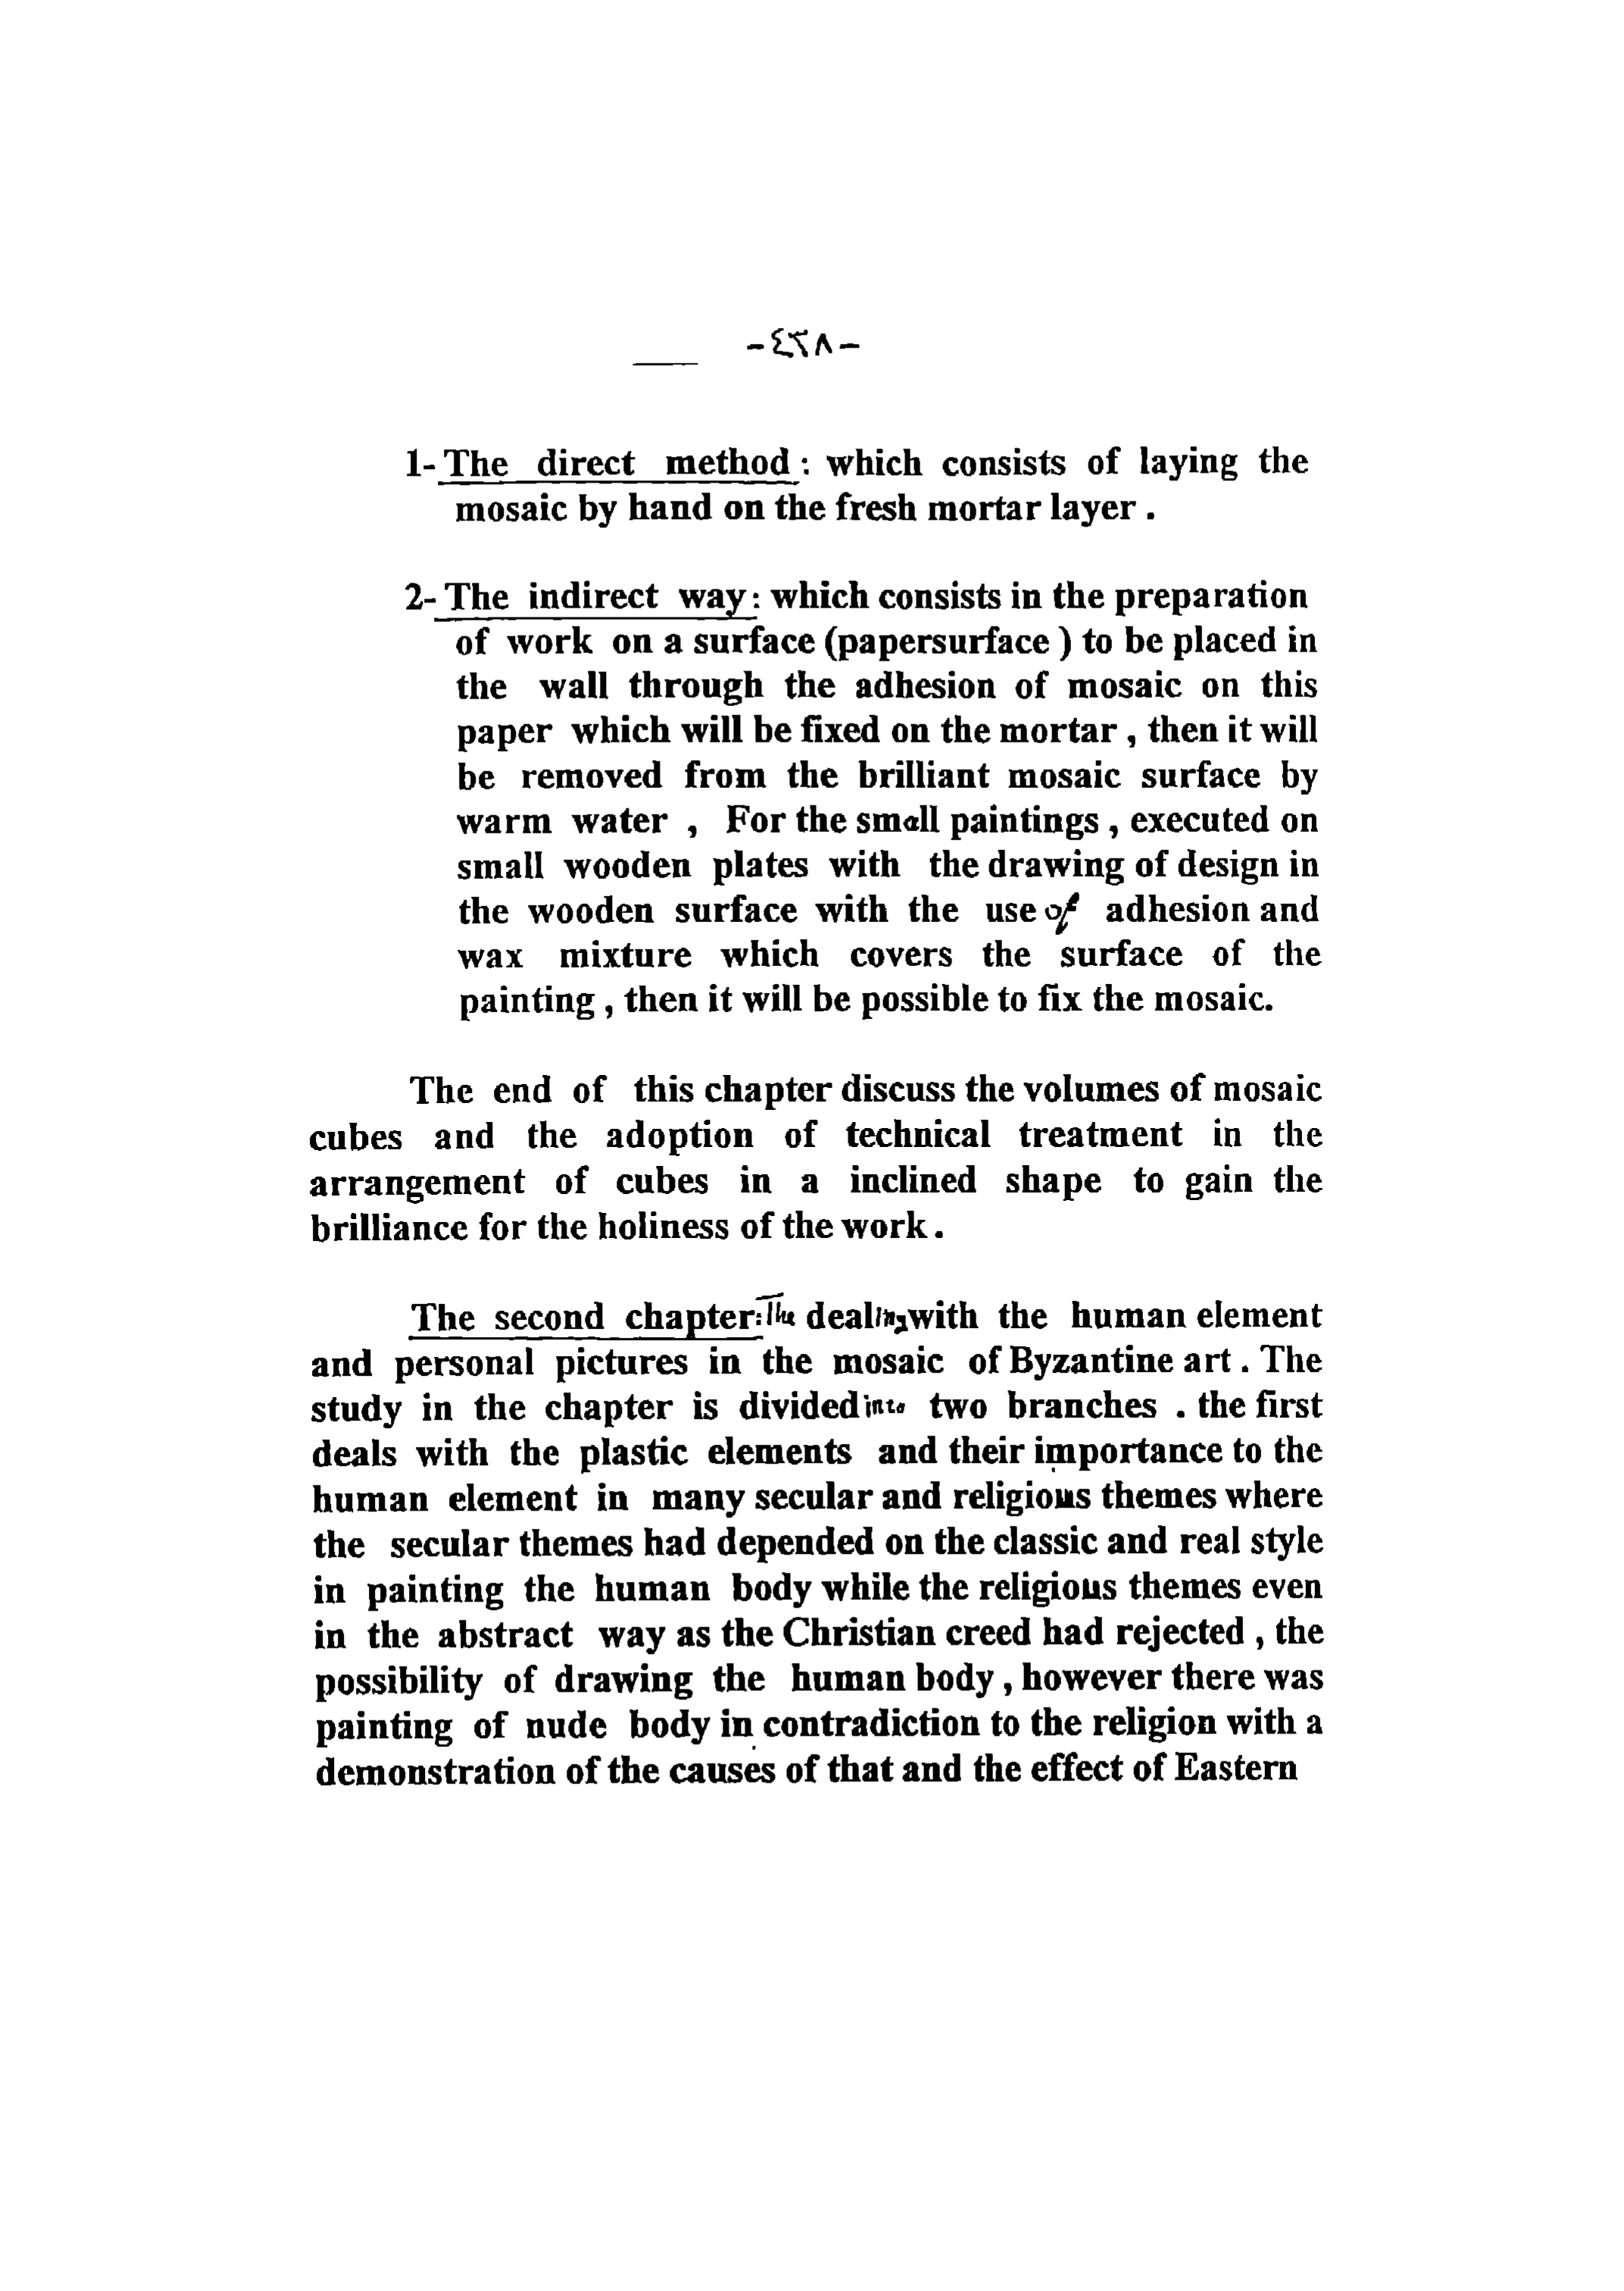 -٤٢٨-
1- The direct method : which consists of laying the
mosaic by hand on the fresh mortar layer .
2- The indirect way : which consists in the preparation
of work on a surface (papersurface ) to be placed in
the wall through the adhesion of mosaic on this
paper which will be fixed on the mortar , then it will
be removed from the brilliant mosaic surface by
warm water , For the small paintings , executed on
small wooden plates with the drawing of design in
the wooden surface with the use of adhesion and
wax mixture which covers the surface of the
painting , then it will be possible to fix the mosaic.
The end of this chapter discuss the volumes of mosaic
cubes and the adoption of technical treatment in the
arrangement of cubes in a inclined shape to gain the
brilliance for the holiness of the work .
The second chapter: The dealing with the human element
and personal pictures in the mosaic of Byzantine art . The
study in the chapter is divided into two branches . the first
deals with the plastic elements and their importance to the
human element in many secular and religious themes where
the secular themes had depended on the classic and real style
in painting the human body while the religious themes even
in the abstract way as the Christian creed had rejected , the
possibility of drawing the human body , however there was
painting of nude body in contradiction to the religion with a
demonstration of the causes of that and the effect of Eastern